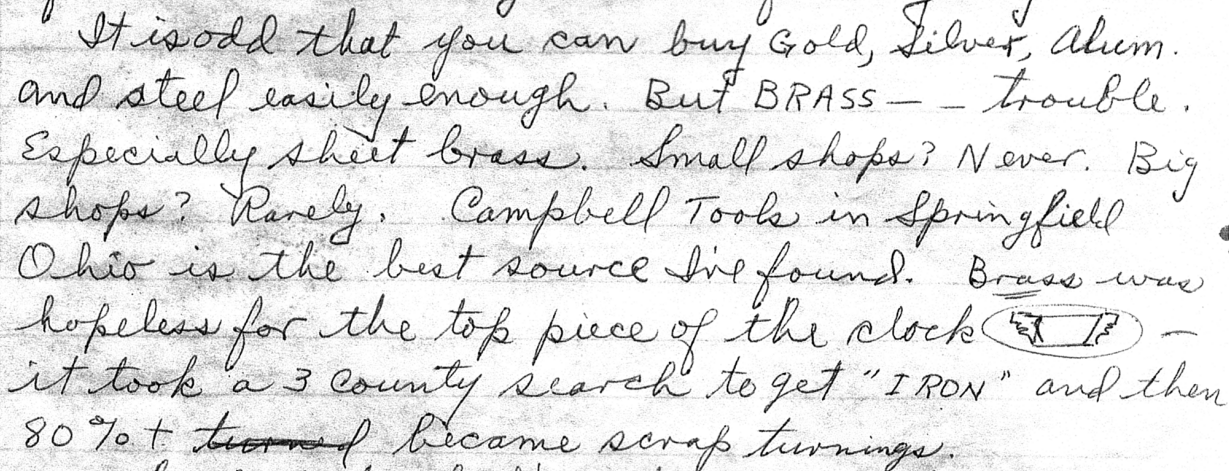 It is odd that you can buy Gold, Silver, Alum.
and steel easily enough. But BRASS — – trouble.
Especially sheet brass. Small shops? Never. Big
shops? Rarely. Campbell Tools in Springfield
Ohio is the best source I've found. Brass was
hopeless for the top piece of the clock —
it took a 3 County search to get "IRON" and then
80%+ turned became scrap turnings.